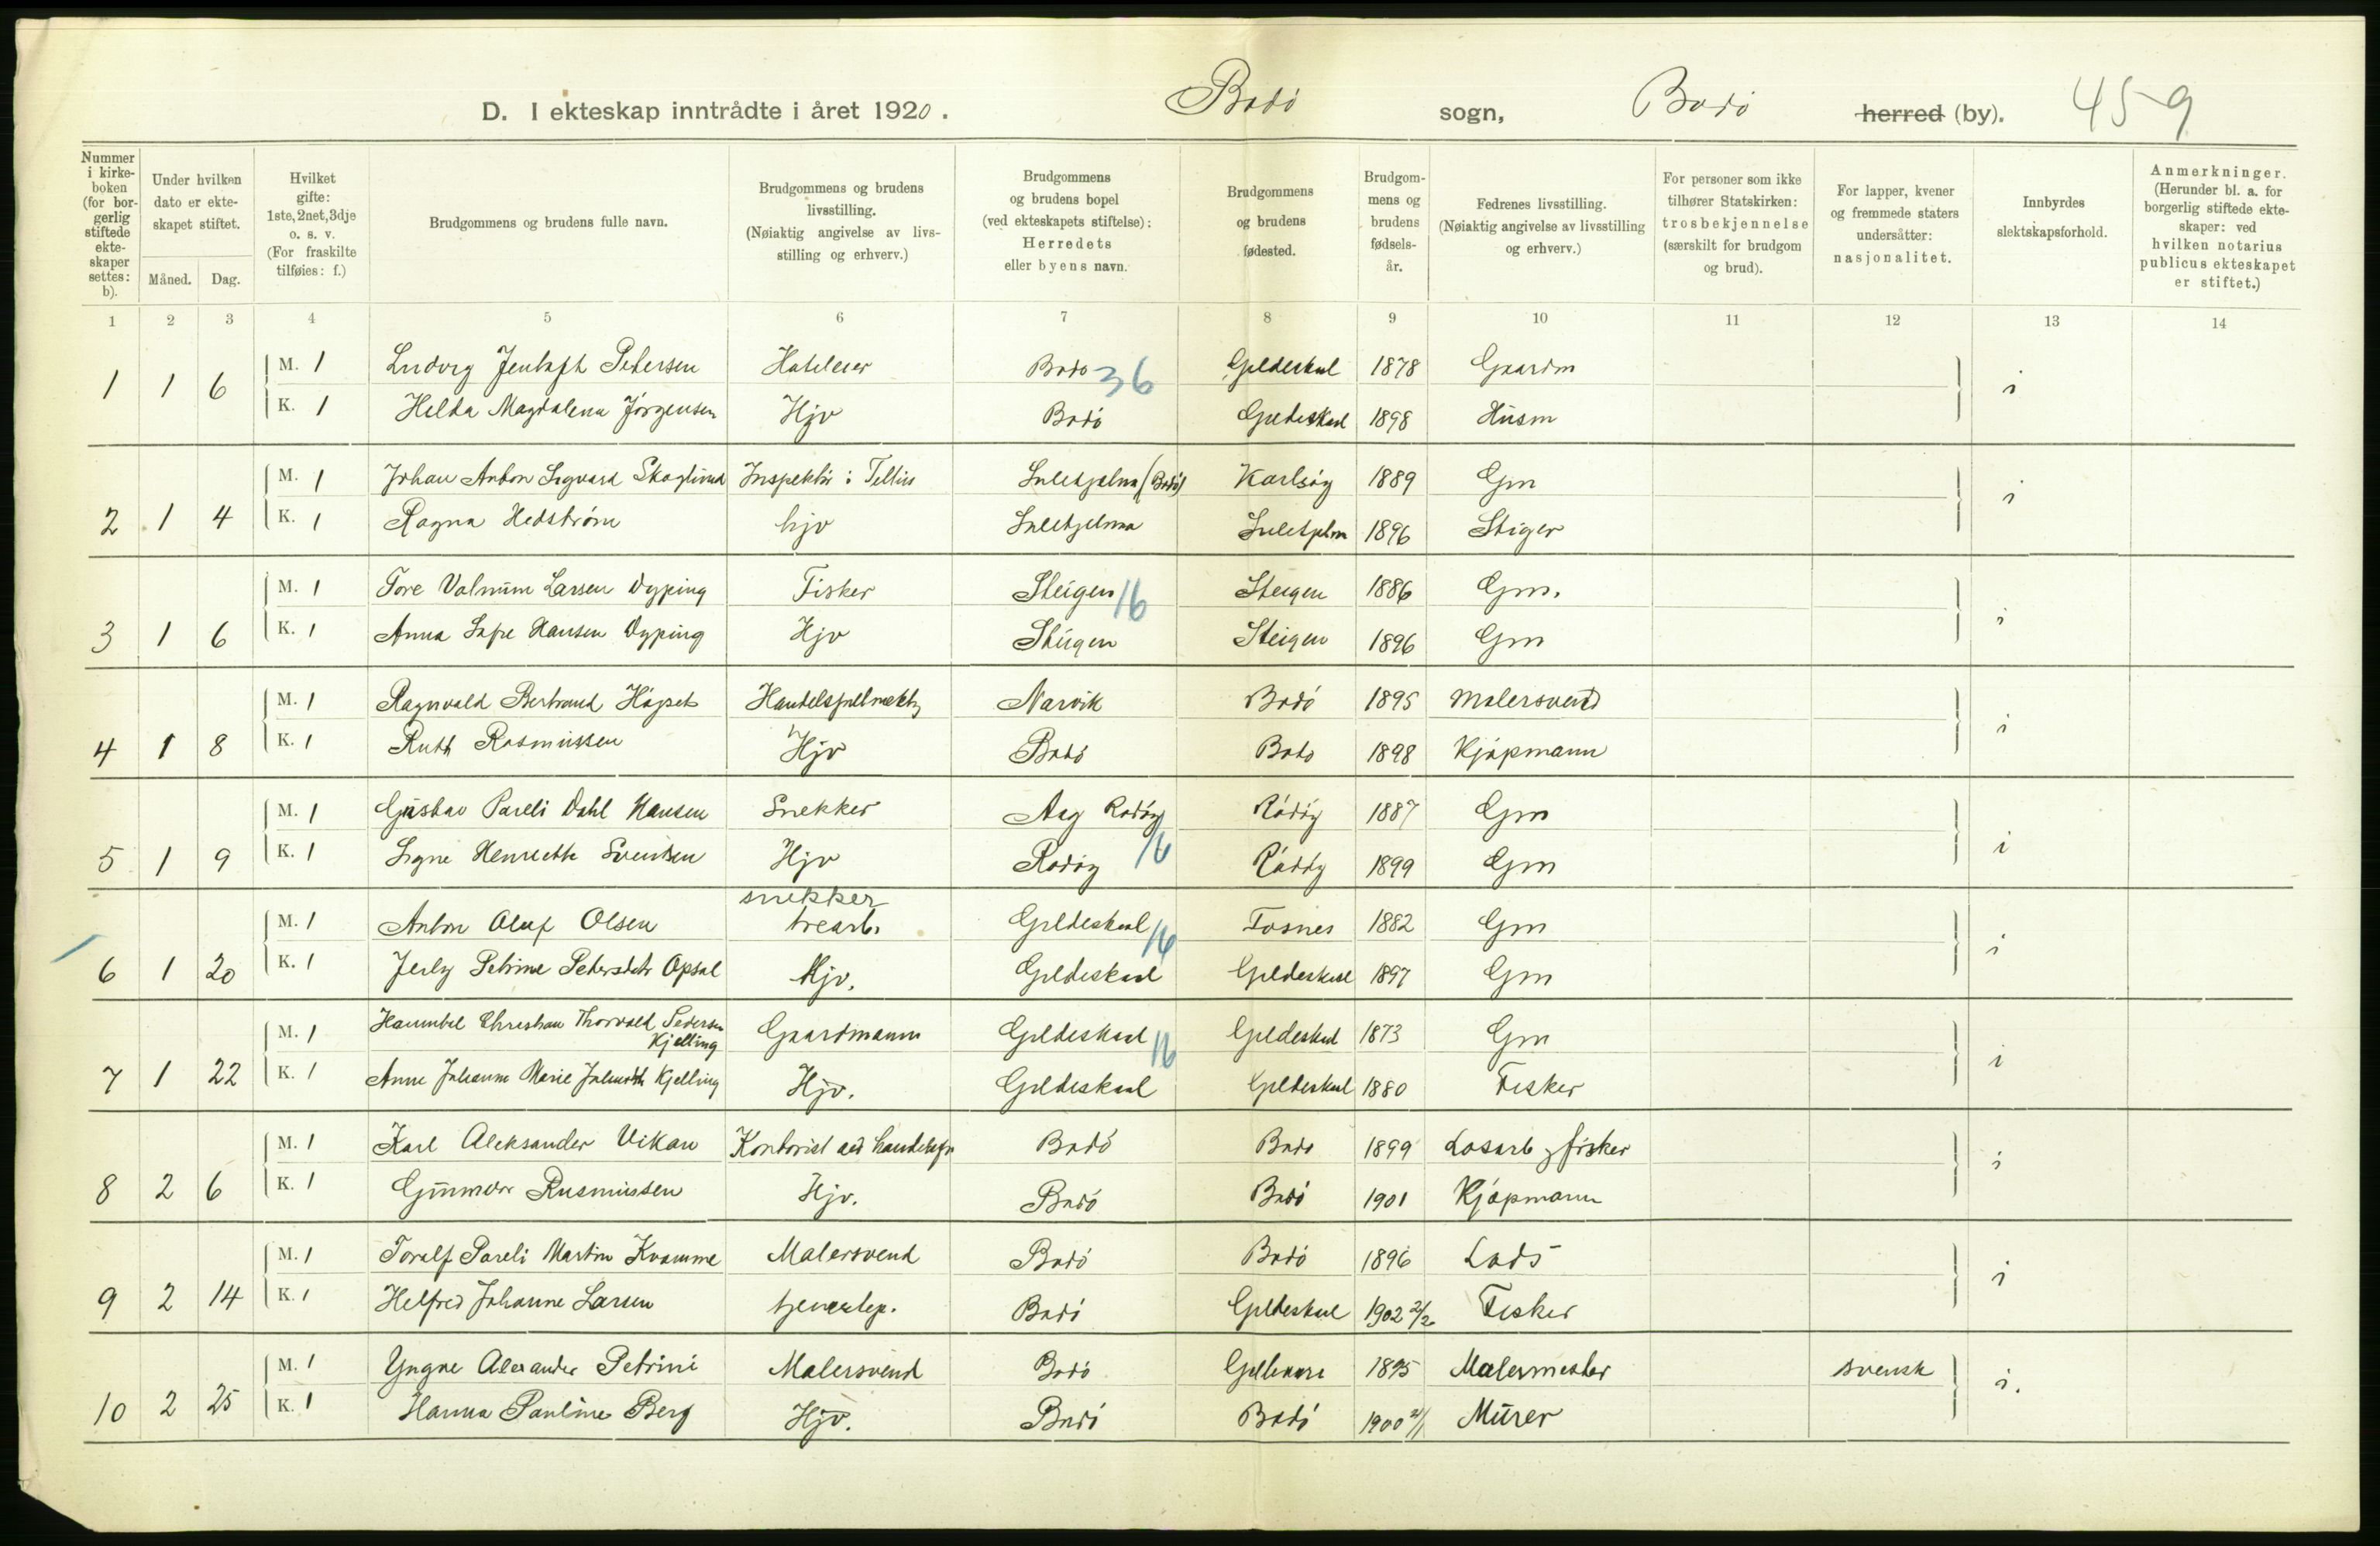 D. I ekteskap inntrådte i året 1920. Bodö sogn, Bodö herred (by). 459
Nummer i kirke-boken (for bor-gerlig stiftede ekte-skaper settes: b).
Under hvilken dato er ekte-skapet stiftet.
Måned. Dag.
Hvilket gifte: 1ste, 2net, 3dje o. s. v. (For fraskilte tilføies: f.)
Brudgommens og brudens fulle navn.
Brudgommens og brudens livsstilling. (Nøiaktig angivelse av livs-stilling og erhverv.)
Brudgommens og brudens bopel (ved ekteskapets stiftelse): Herredets eller byens navn.
Brudgommens og brudens fødested.
Brudgom-mens og brudens fødsels-år.
Fedrenes livsstilling. (Nøiaktig angivelse av livsstilling og erhverv.)
For personer som ikke tilhører Statskirken: trosbekjennelse (særskilt for brudgom og brud).
For lapper, kvener og fremmede staters undersåtter: nasjonalitet.
Innbyrdes slektskapsforhold.
Anmerkninger. (Herunder bl. a. for borgerlig stiftede ekte-skaper: ved hvilken notarius publicus ekteskapet er stiftet.)
1 2 3 4 5 6 7 8 9 10 11 12 13 14
M. 1 Ludvig Jentoft Petersen Hoteleier Bodo 36 Gildeskaal 1878 Gaardm
1 1 6 i
K. 1 Helda Magdalena Jörgensen Hjv Bodö Gildeskaal 1898 Husm
M. 1 Johan Anton Sigvard Skoglund Inspektör i Sulitjelma (Bodö) Karlsöy 1889 Gm
2 1 4 i
K. 1 Ragna Hedström hjv Sulitjelma Sulitjelm 1896 Stiger
M. 1 Tore Larsen Dyping Fisker Steigen 16 Steigen 1886 Gm.
3 1 6 i
K. 1 Anna Hansen Dyping Hjv Steigen Steigen 1896 Gm
M. 1 Ragnvald Bertrand Högset Narvik Bodö 1895 Malersvend
4 1 8 i
K. 1 Ruth Rasmussen Hjv Bodö Bodo 1898 Kjöpmann
M. 1 Gustav Pareli Dahl Hansen Snekker Aag Rodöy Rödöy 1887 Gm
5 1 9 i
K. 1 Signe Henriette Svendsen Hjv Rodöy 16 Rödöy 1899 Gm
snekker
M. 1 Anton Oluf Olsen trearb. Gildeskaal 16 Fosnes 1882 Gm
6 1 20 i
K. 1 Petrine Petersdtr Opsal Hjv. Gildeskaal Gildeskaal 1897 Gm
M. 1 Christian Thorvald Pedersen Kjelling Gaardmann Gildeskaal 16 Gildeskaal 1873 Gm
7 1 22 i
K. 1 Anne Johanne Marie Kjelling Hjv. Gildeskaal Gildeskaal 1880 Fisker
M. 1 Karl Aleksander Vikan Kontorist Bodö Bodo 1899 Losarb og fisker
8 2 6 i
K. 1 Gunvor Rasmussen Hjv. Bodö Bodö 1901 Kjöpmann
M. 1 Toralf Pareli Martin Kvamme Malersvend Bodö Bodö 1896 Lods
9 2 14 i
K. 1 Helfred Johanne Larsen tjenestep. Bodö Gildeskaal 1902 2/2 Fisker
M. 1 Yngve Alexander Petrini Malersvend Bodö 1895 Malermester svensk
10 2 25 i.
K. 1 Hanna Pauline Berg Hjv. Bodö Bodö 1900 Murer